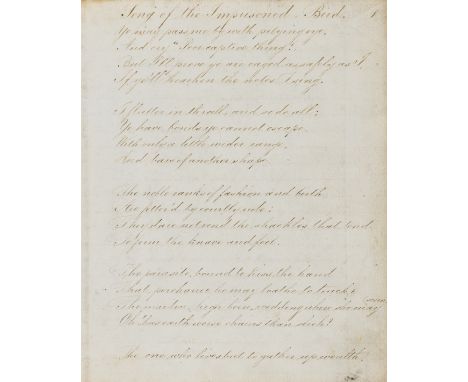 Song of the Imprisoned Bird. 1
Ye may pass me by with pitying eye,
And cry "Poor captive thing!
But I'll prove ye are caged as safely as I,
If ye'll hearken the notes I sing.
I flutter in thrall, and so do all;
Ye have bonds ye cannot escape.
With only a little wider range.
And bars of another shape.
The noble ranks of fashion and birth
Are fetter'd by courtly rule;
They dare not rend the shackles that tend
To form the knave and fool.
The parasite, bound to kiss the hand
That, perchance he may loathe to touch;
scorn
The maiden, high born, wedding where she may
Oh! has earth worse chains than such?
The one who lives but to gather up wealth.